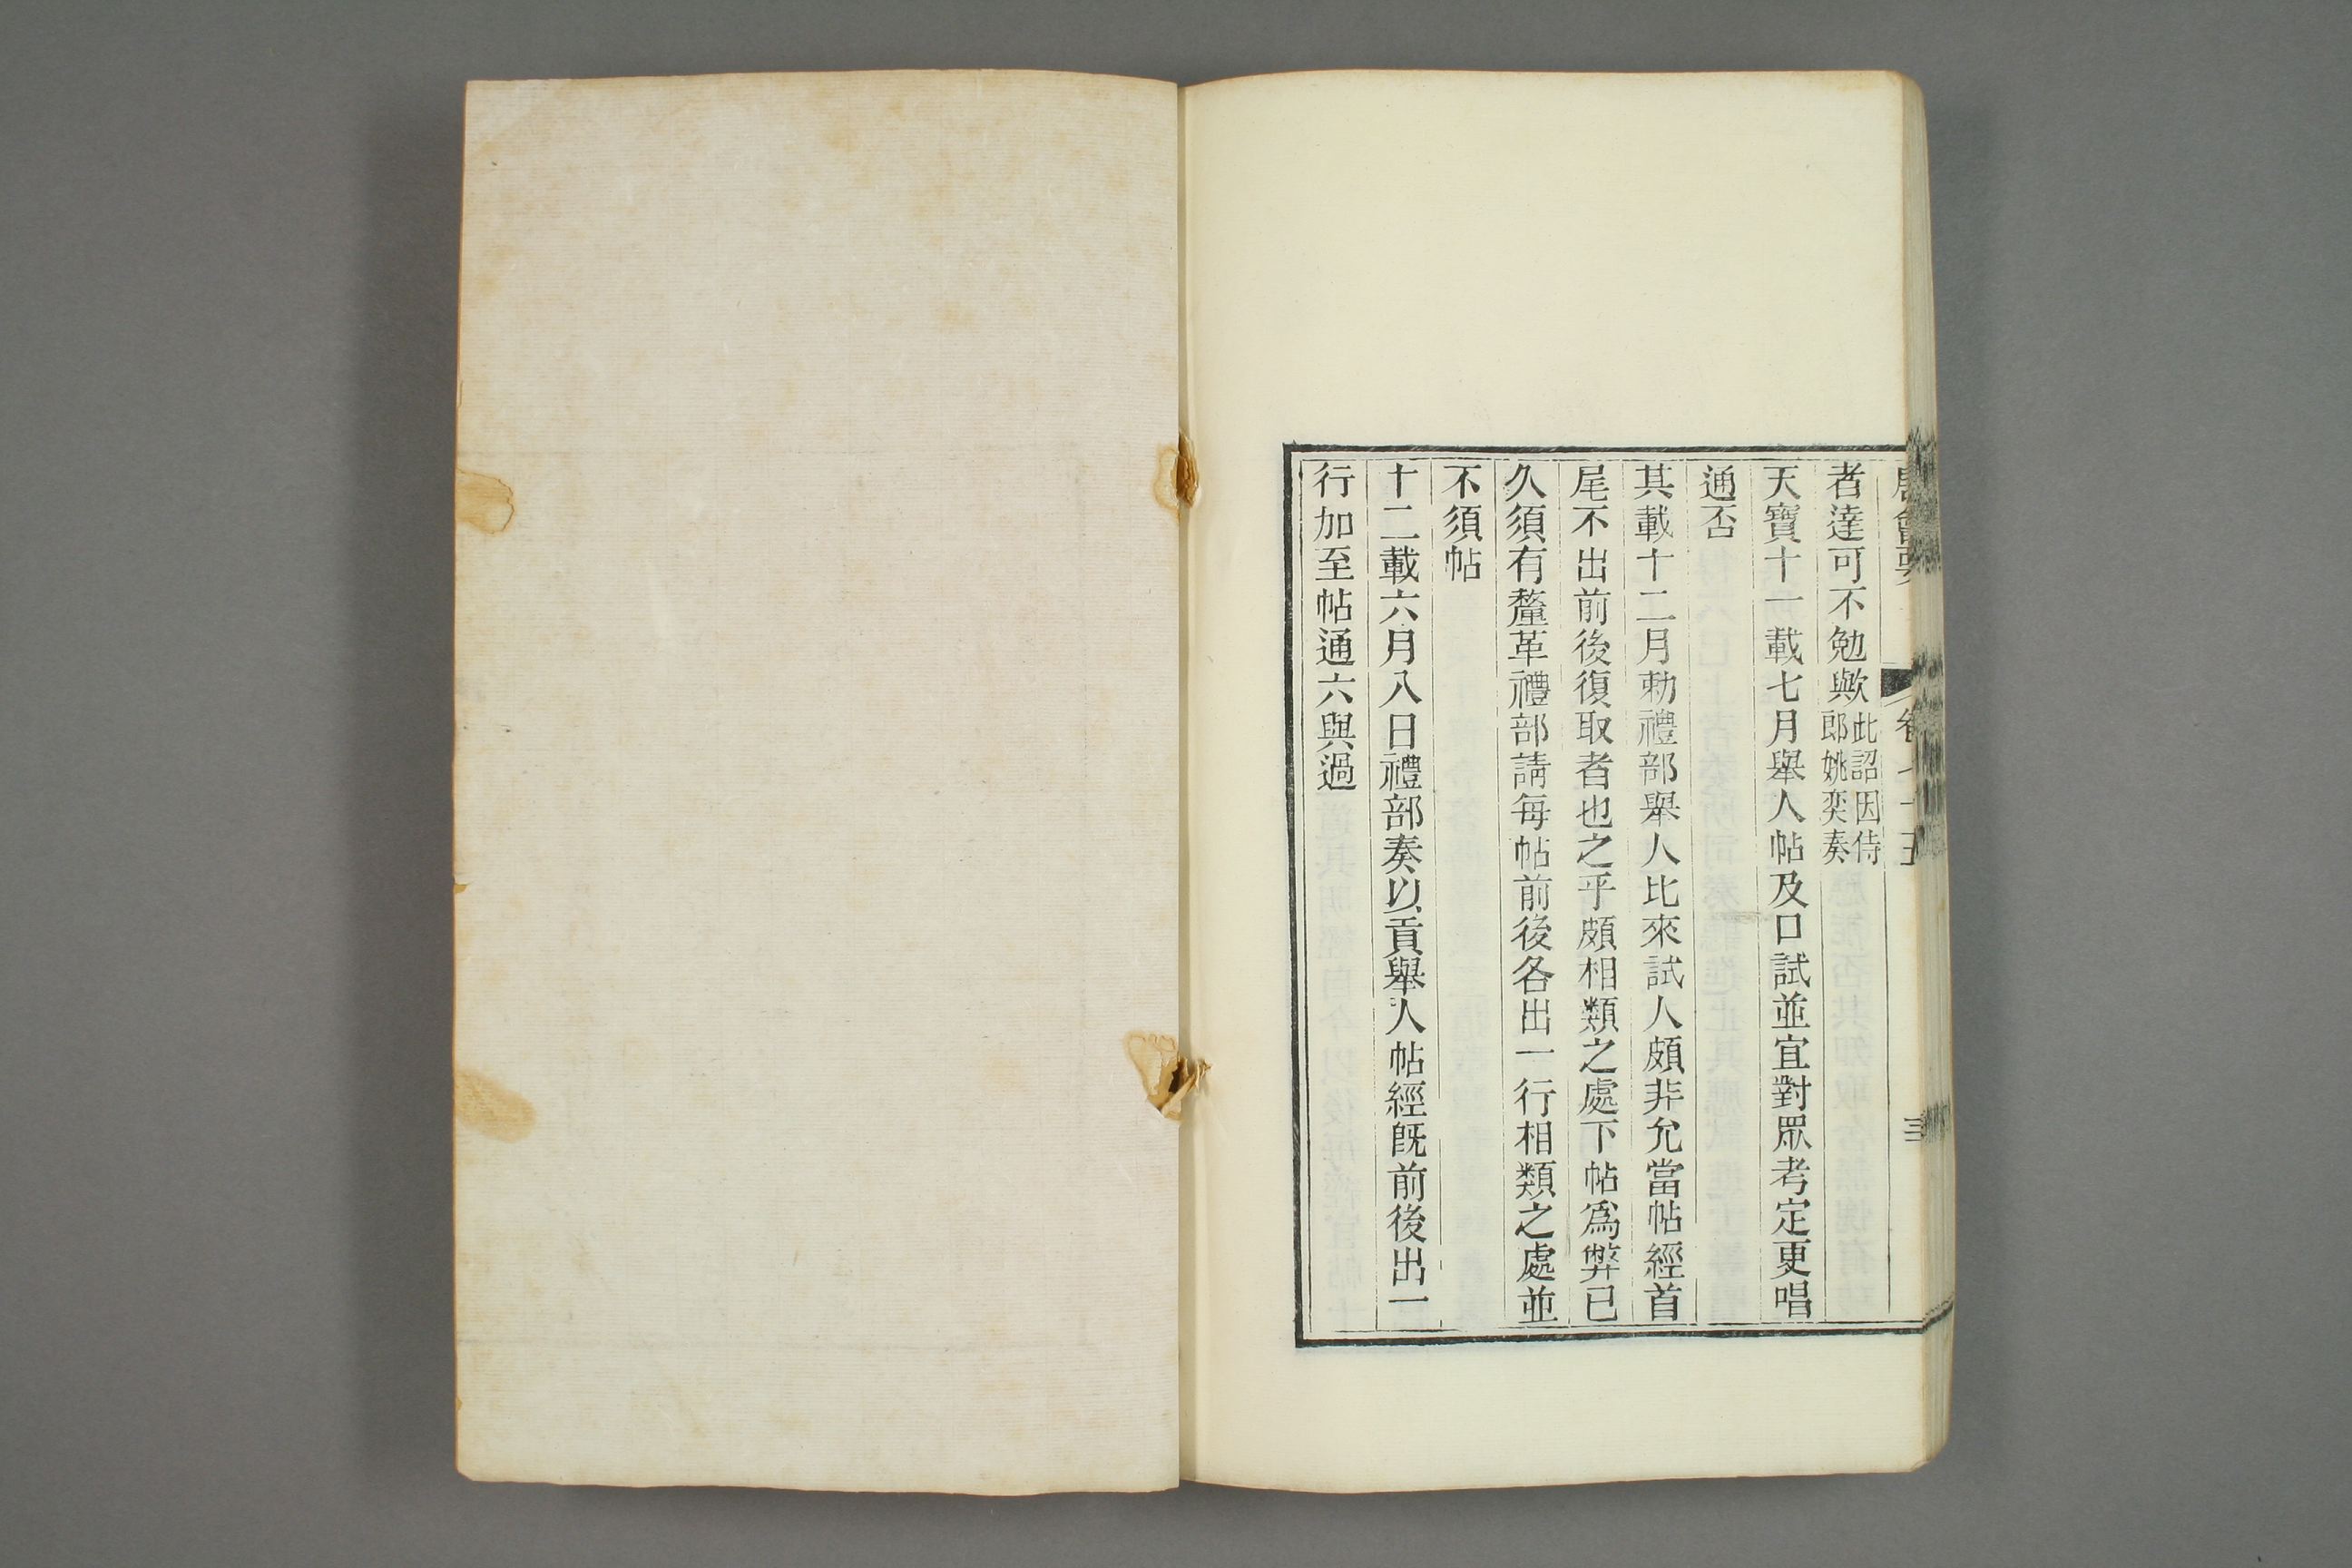 唐會要 卷七十五 三
者達可不勉歟此詔因侍郎姚奕奏
天寶十一載七月舉人帖及口試並宜對眾考定更唱
通否
其載十二月勅禮部舉人比來試人頗非允當帖經首
尾不出前後復取者也之乎頗相類之處下帖爲弊已
久須有釐革禮部請每帖前後各出一行相類之處並
不須帖
十二載六月八日禮部奏以貢舉人帖經旣前後出一
行加至帖通六與過